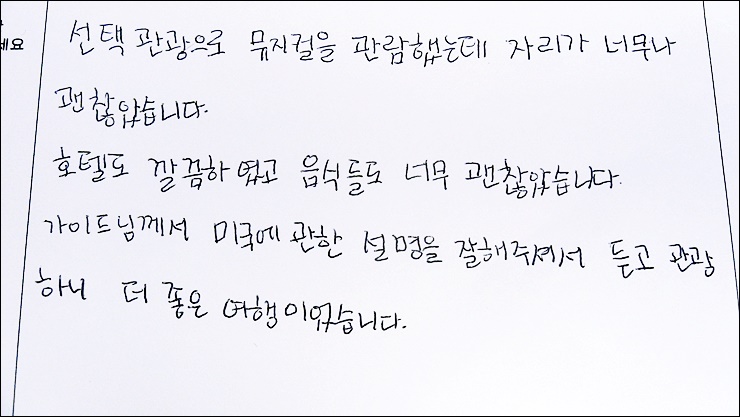 세요
선택 관광으로 뮤지컬을 관람했는데 자리가 너무나
괜찮았습니다.
호텔도 깔끔하였고 음식들도 너무 괜찮았습니다.
가이드님께서 미국에 관한 설명을 잘해주셔서 듣고 관광
하니 더 좋은 여행이었습니다.